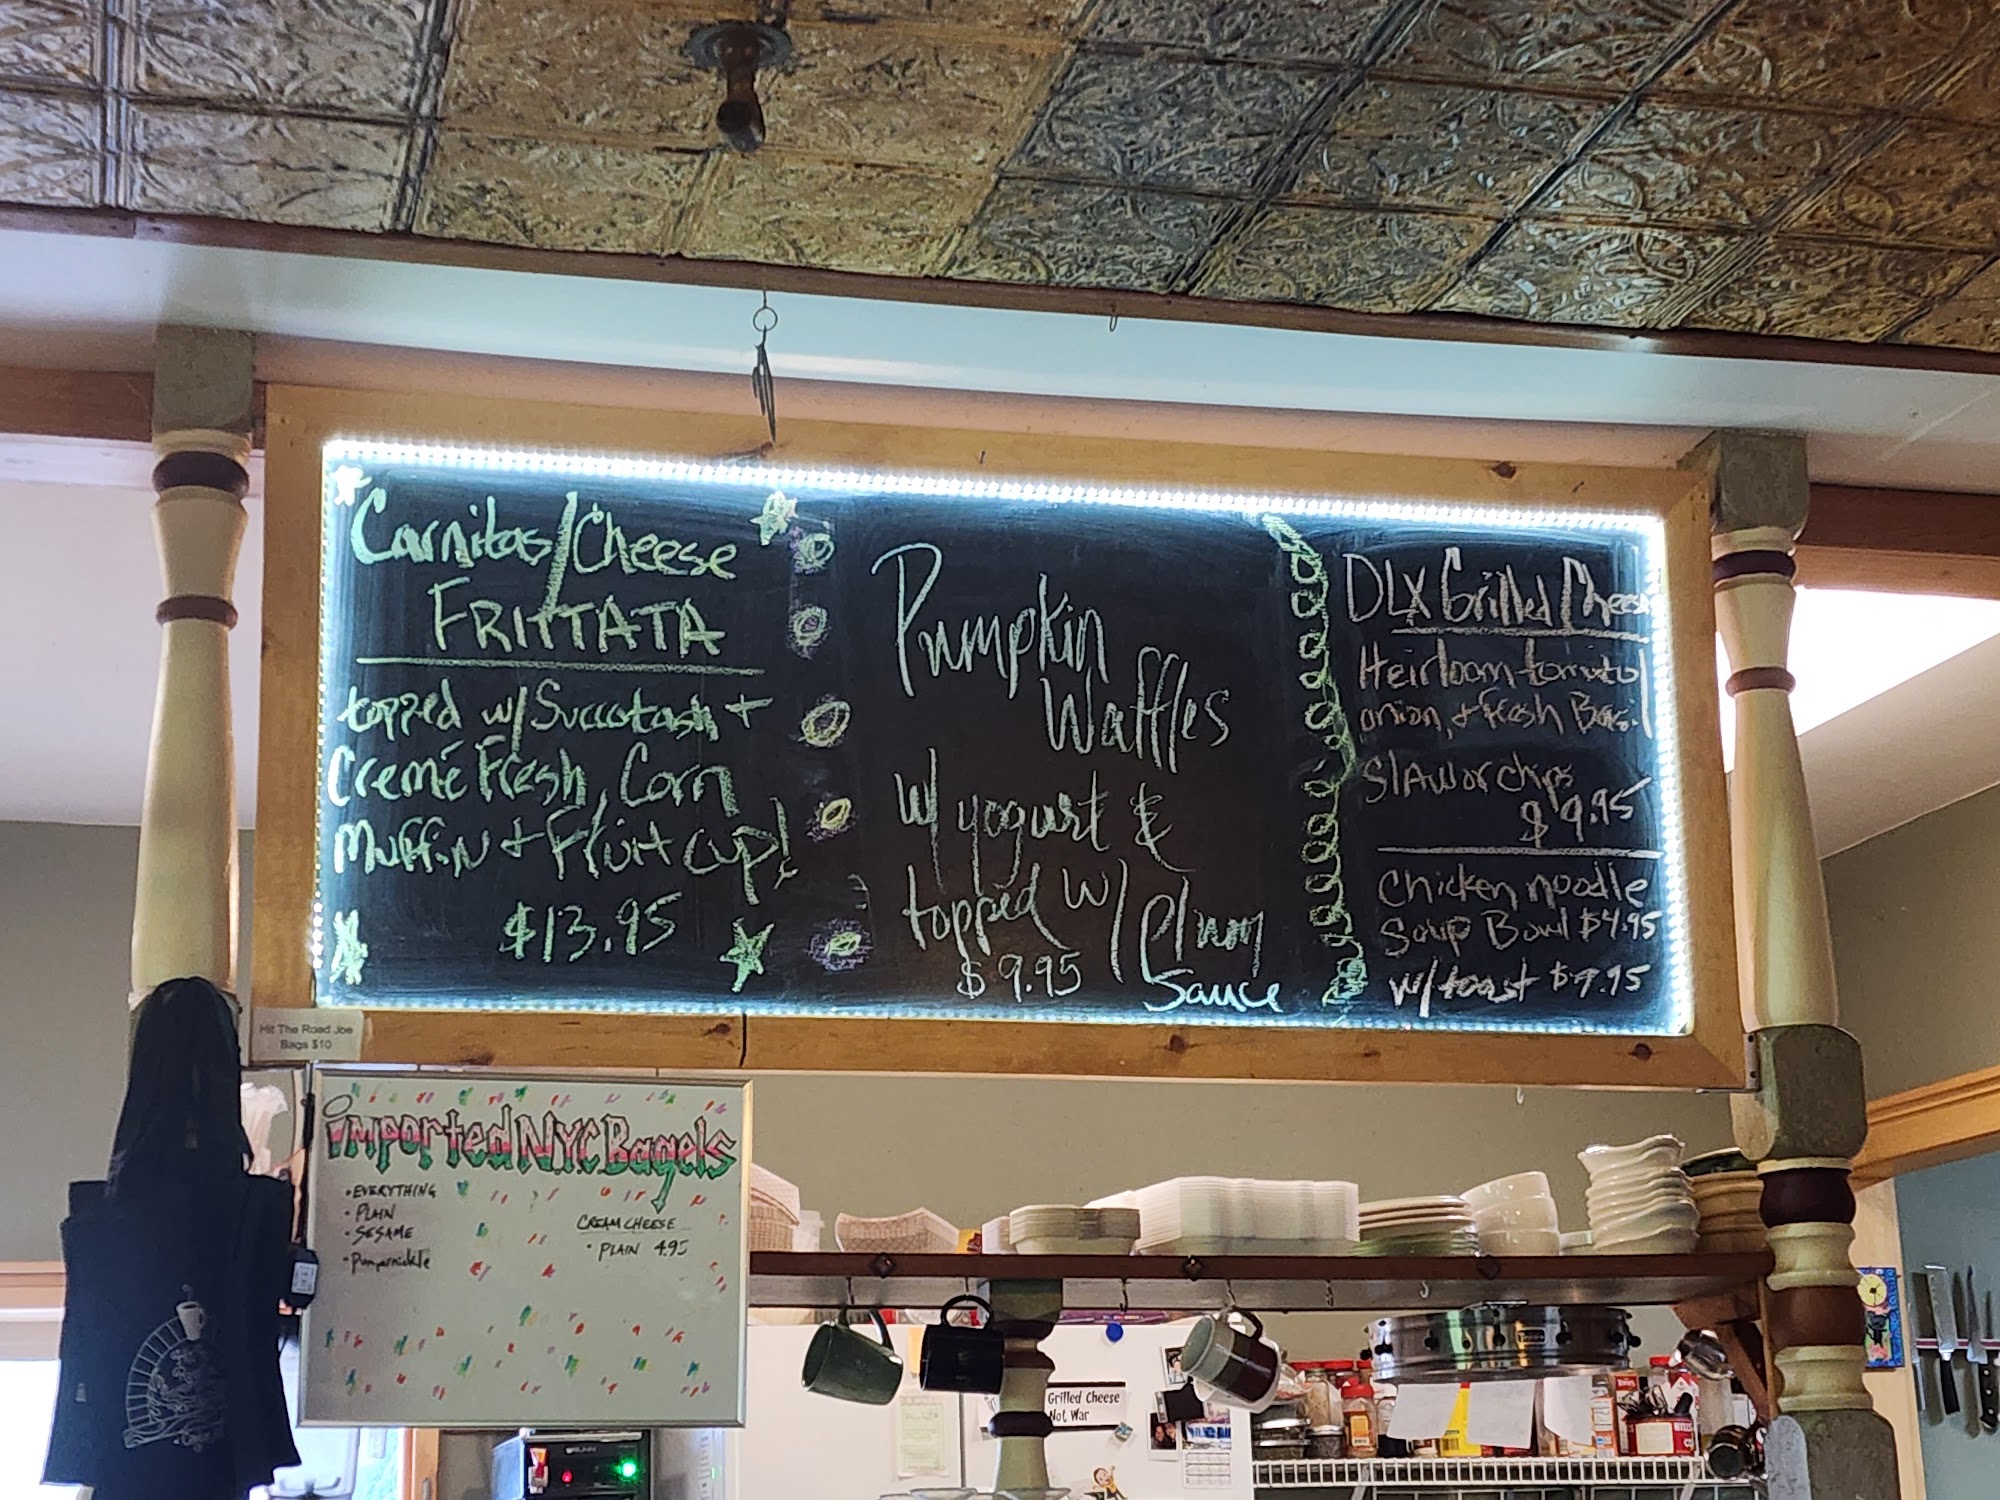 Carnitas/Cheese
FRITTATA
topped w/Succotash +
Cremé Fresh, Corn
Muffin + Fruit cup!
$13.95
Pumpkin
Waffles
w/ yogurt &
topped w/ plum
Sauce
$9.95
DLX Grilled Cheese
Heirloom tomato
onion, + Fresh Basil
Slaw or chips
$9.95
Chicken noodle
Soup Bowl $4.95
w/toast $7.95
Hit The Road Joe
Bags $10
imported N.Y.C Bagels
• EVERYTHING
• PLAIN
• SESAME
• Pumpernickle
CREAM CHEESE
• PLAIN 4.95
Grilled Cheese
Not War